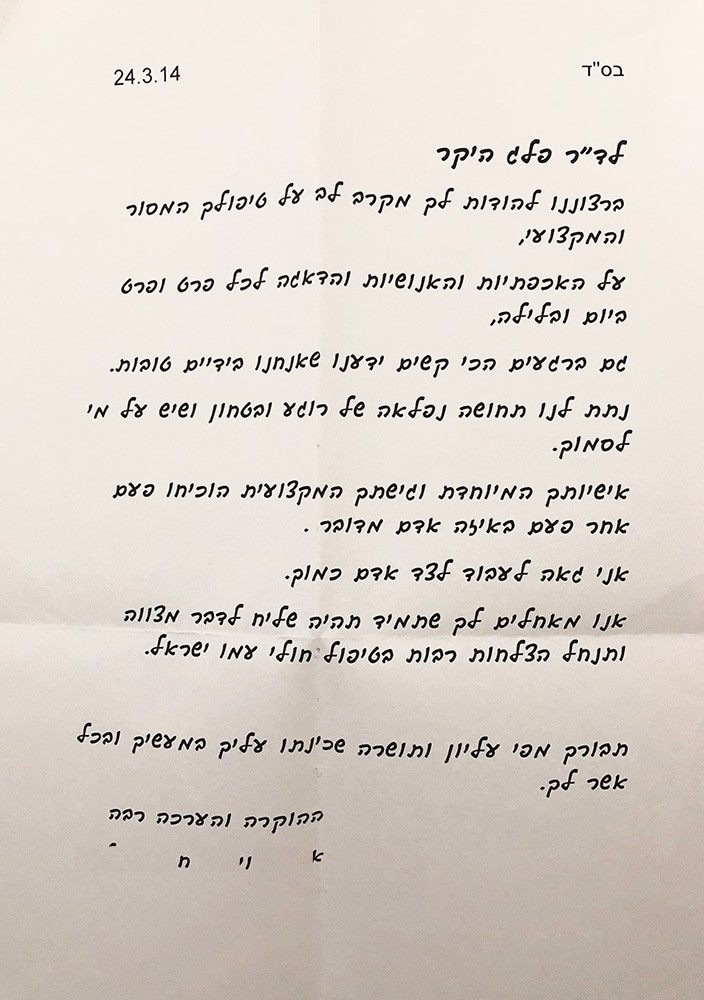 בס"ד
24.3.14
לד"ר פלג היקר
ברצוננו להודות לך מקרב לב על טיפולך המסור
והמקצועי,
על האכפתיות והאנושיות והדאגה לכל פרט ופרט
ביום ובלילה,
גם ברגעים הכי קשים ידענו שאנחנו בידיים טובות.
נתת לנו תחושה נפלאה של רוגע ובטחון ושיש על מי
לסמוך.
אישיותך המיוחדת וגישתך המקצועית הוכיחו פעם
אחר פעם באיזה אדם מדובר .
אני גאה לעבוד לצד אדם כמוך.
אנו מאחלים לך שתמיד תהיה שליח לדבר מצווה
ותנחל הצלחות רבות בטיפול חולי עמו ישראל.
תבורך מפי עליון ותושרה שכינתו עליך במעשיך ובכל
אשר לך.
ההוקרה והערכה רבה
א וי ח